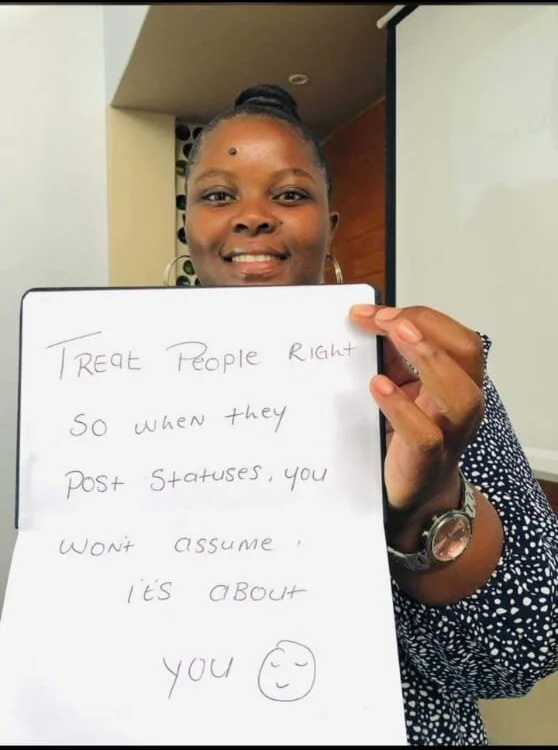 Treat People Right
So when they
Post Statuses, you
wont assume,
it's about
you